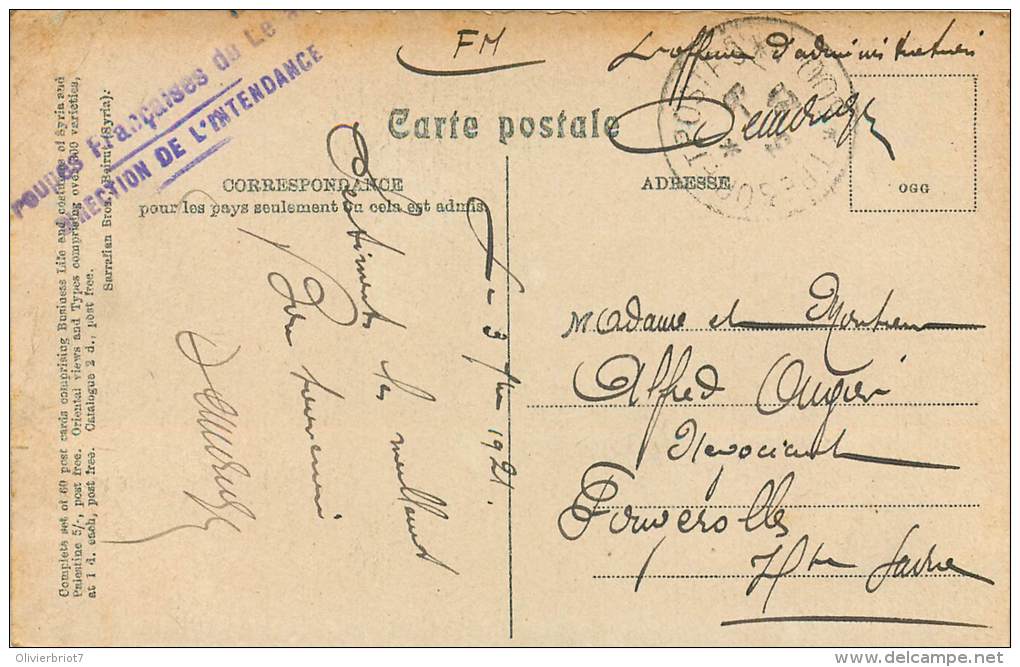 Troupes Françaises du Le
DIRECTION DE L'INTENDANCE
FM
L'officier d'administration
Carte postale
CORRESPONDANCE
pour les pays seulement ou cela est admis.
ADRESSE
OGG
TRESOR ET POSTES
Le 3 1921.
Sentiments les meilleurs
Bon souvenir
Madame et Monsieur
Alfred Augier
Négociant
Fougerolles
Hte Saône
Complete set of 60 post cards comprising Business Life and costumes of Syria and
Palestine 5/-, post free. Oriental views and Types comprising over 300 varieties,
at 1 d. each, post free. Catalogue 2 d., post free.
Sarrafian Bros. Beirut (Syria).
Olivierbriot7
delcampe.net